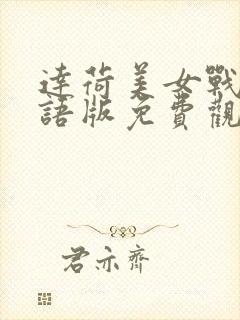 達荷美女戰
語版免費觀
君亦齊